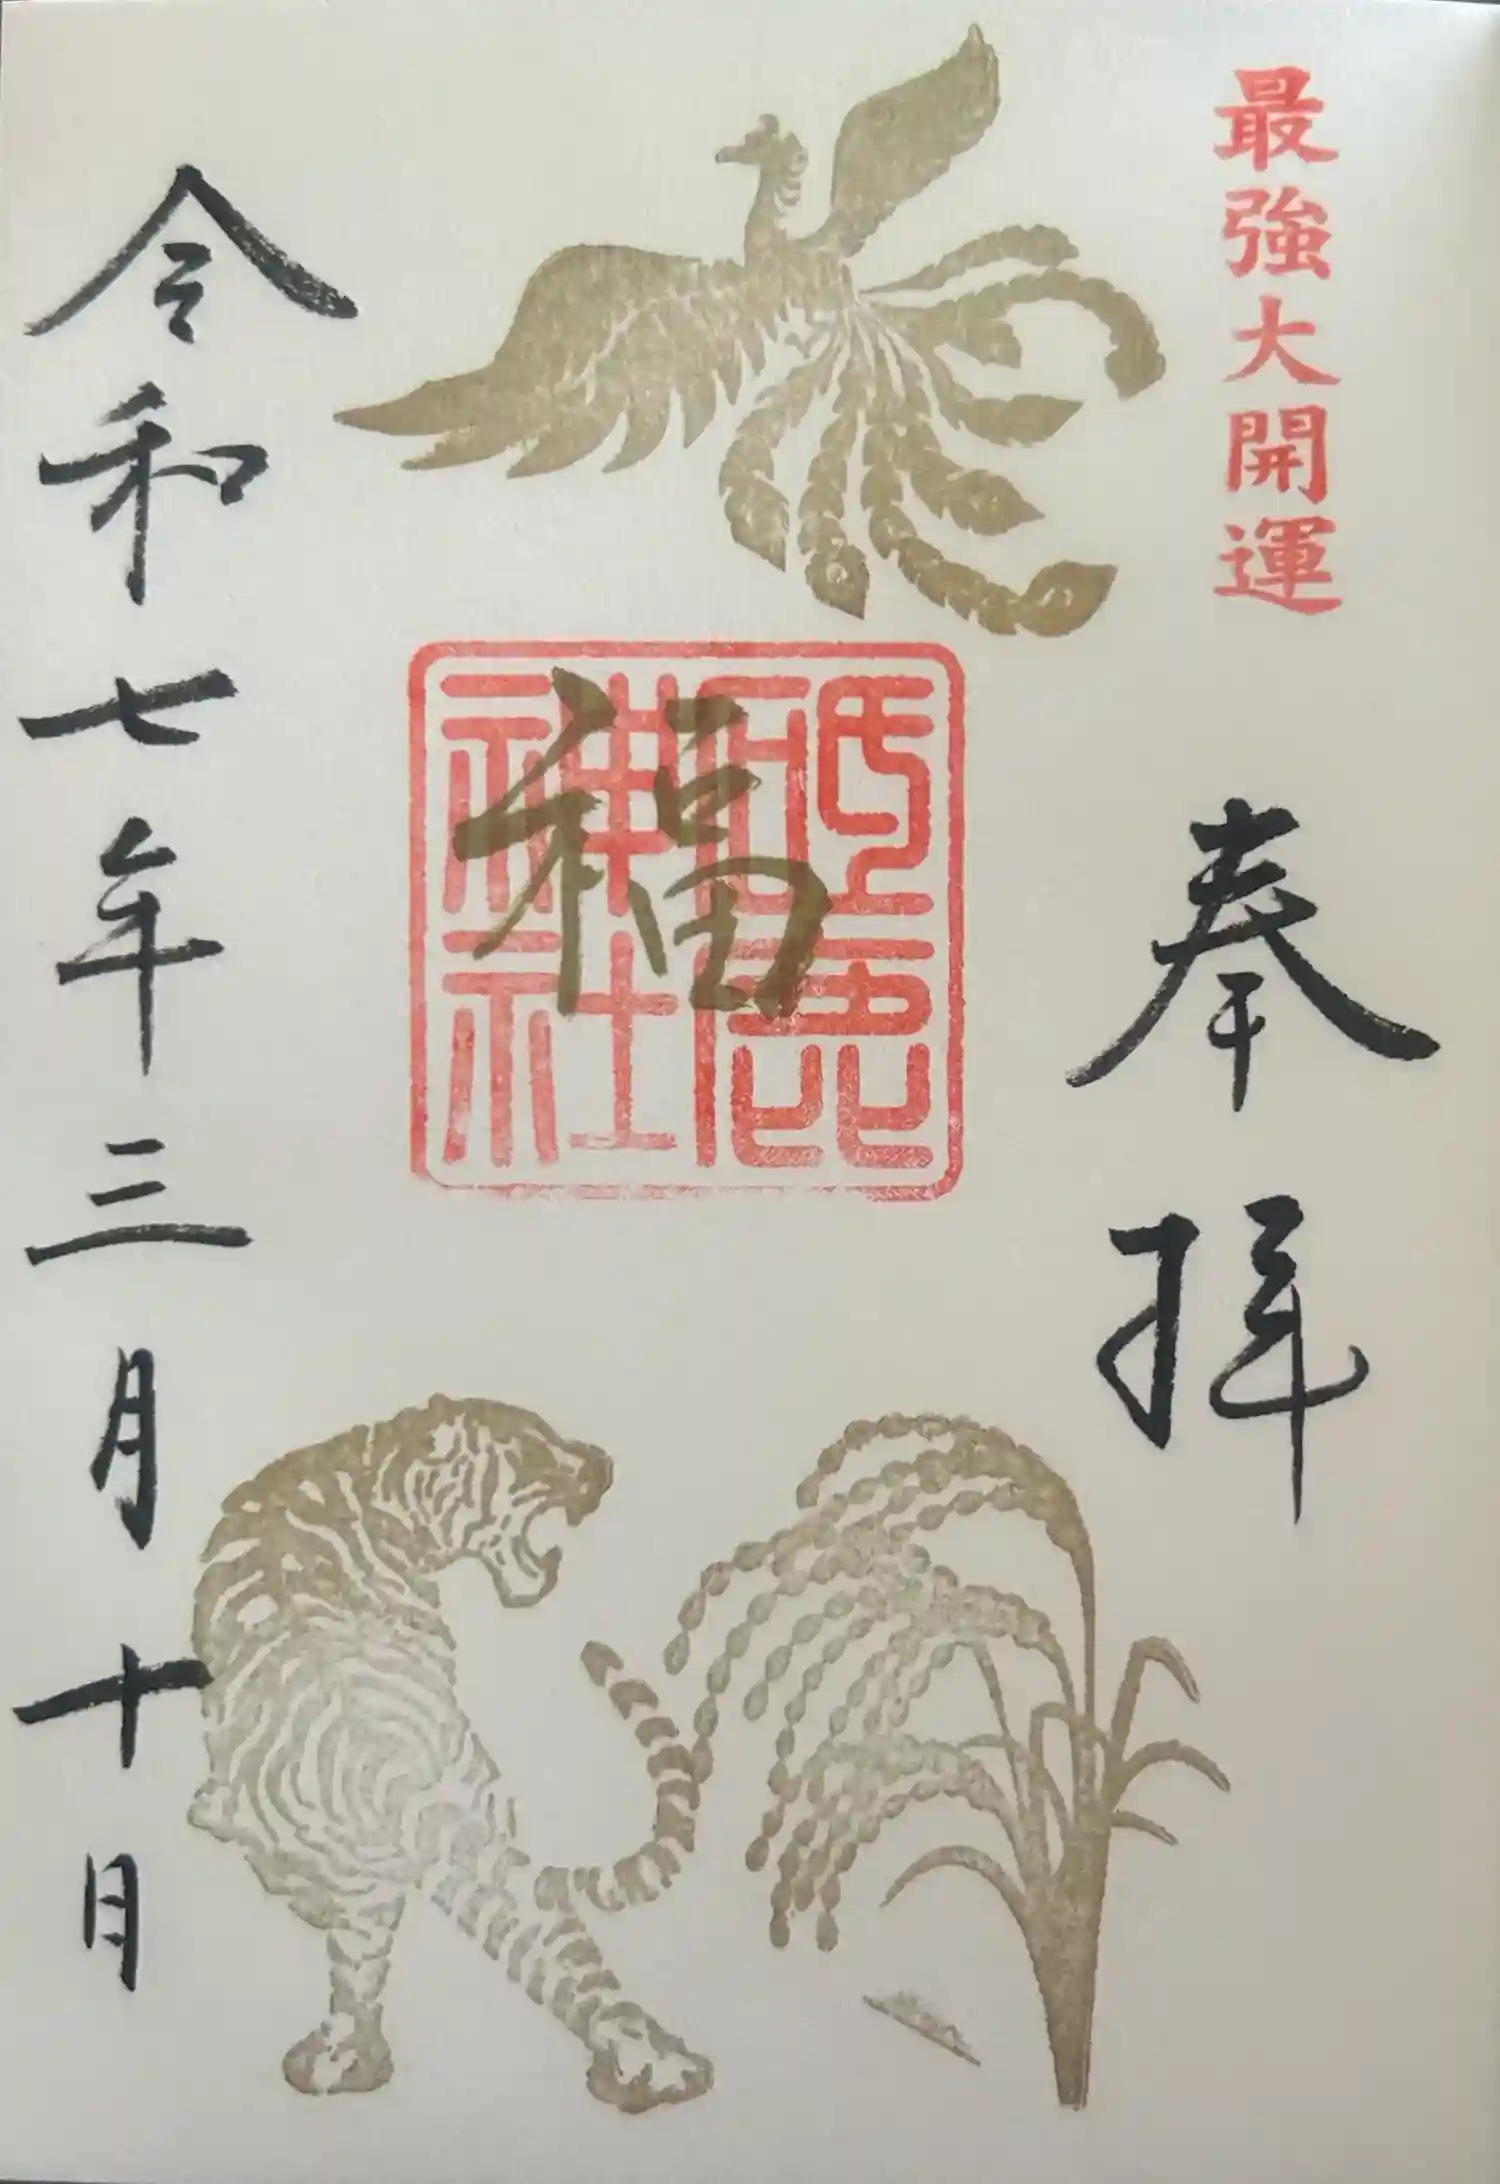 最強大開運
奉拝
福
砥鹿
神社
令和七年三月十日